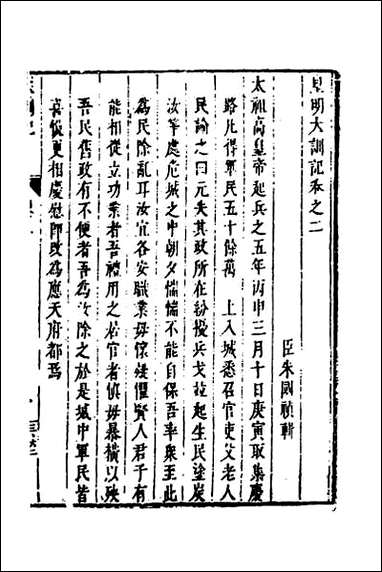 皇明大訓記卷之二
臣朱國禎輯
太祖高皇帝起兵之五年丙申三月十日庚寅取集慶
路凡得軍民五十餘萬　上入城悉召官吏父老人
民諭之曰元失其政所在紛擾兵戈並起生民塗炭
汝等處危城之中朝夕惴惴不能自保吾率眾至此
為民除亂耳汝宜各安職業毋懷疑懼賢人君子有
能相從立功業者吾禮用之若官者慎毋暴橫以殃
吾民舊政有不便者吾為汝除之於是城中軍民皆
喜悅更相慶慰即改為應天府都焉